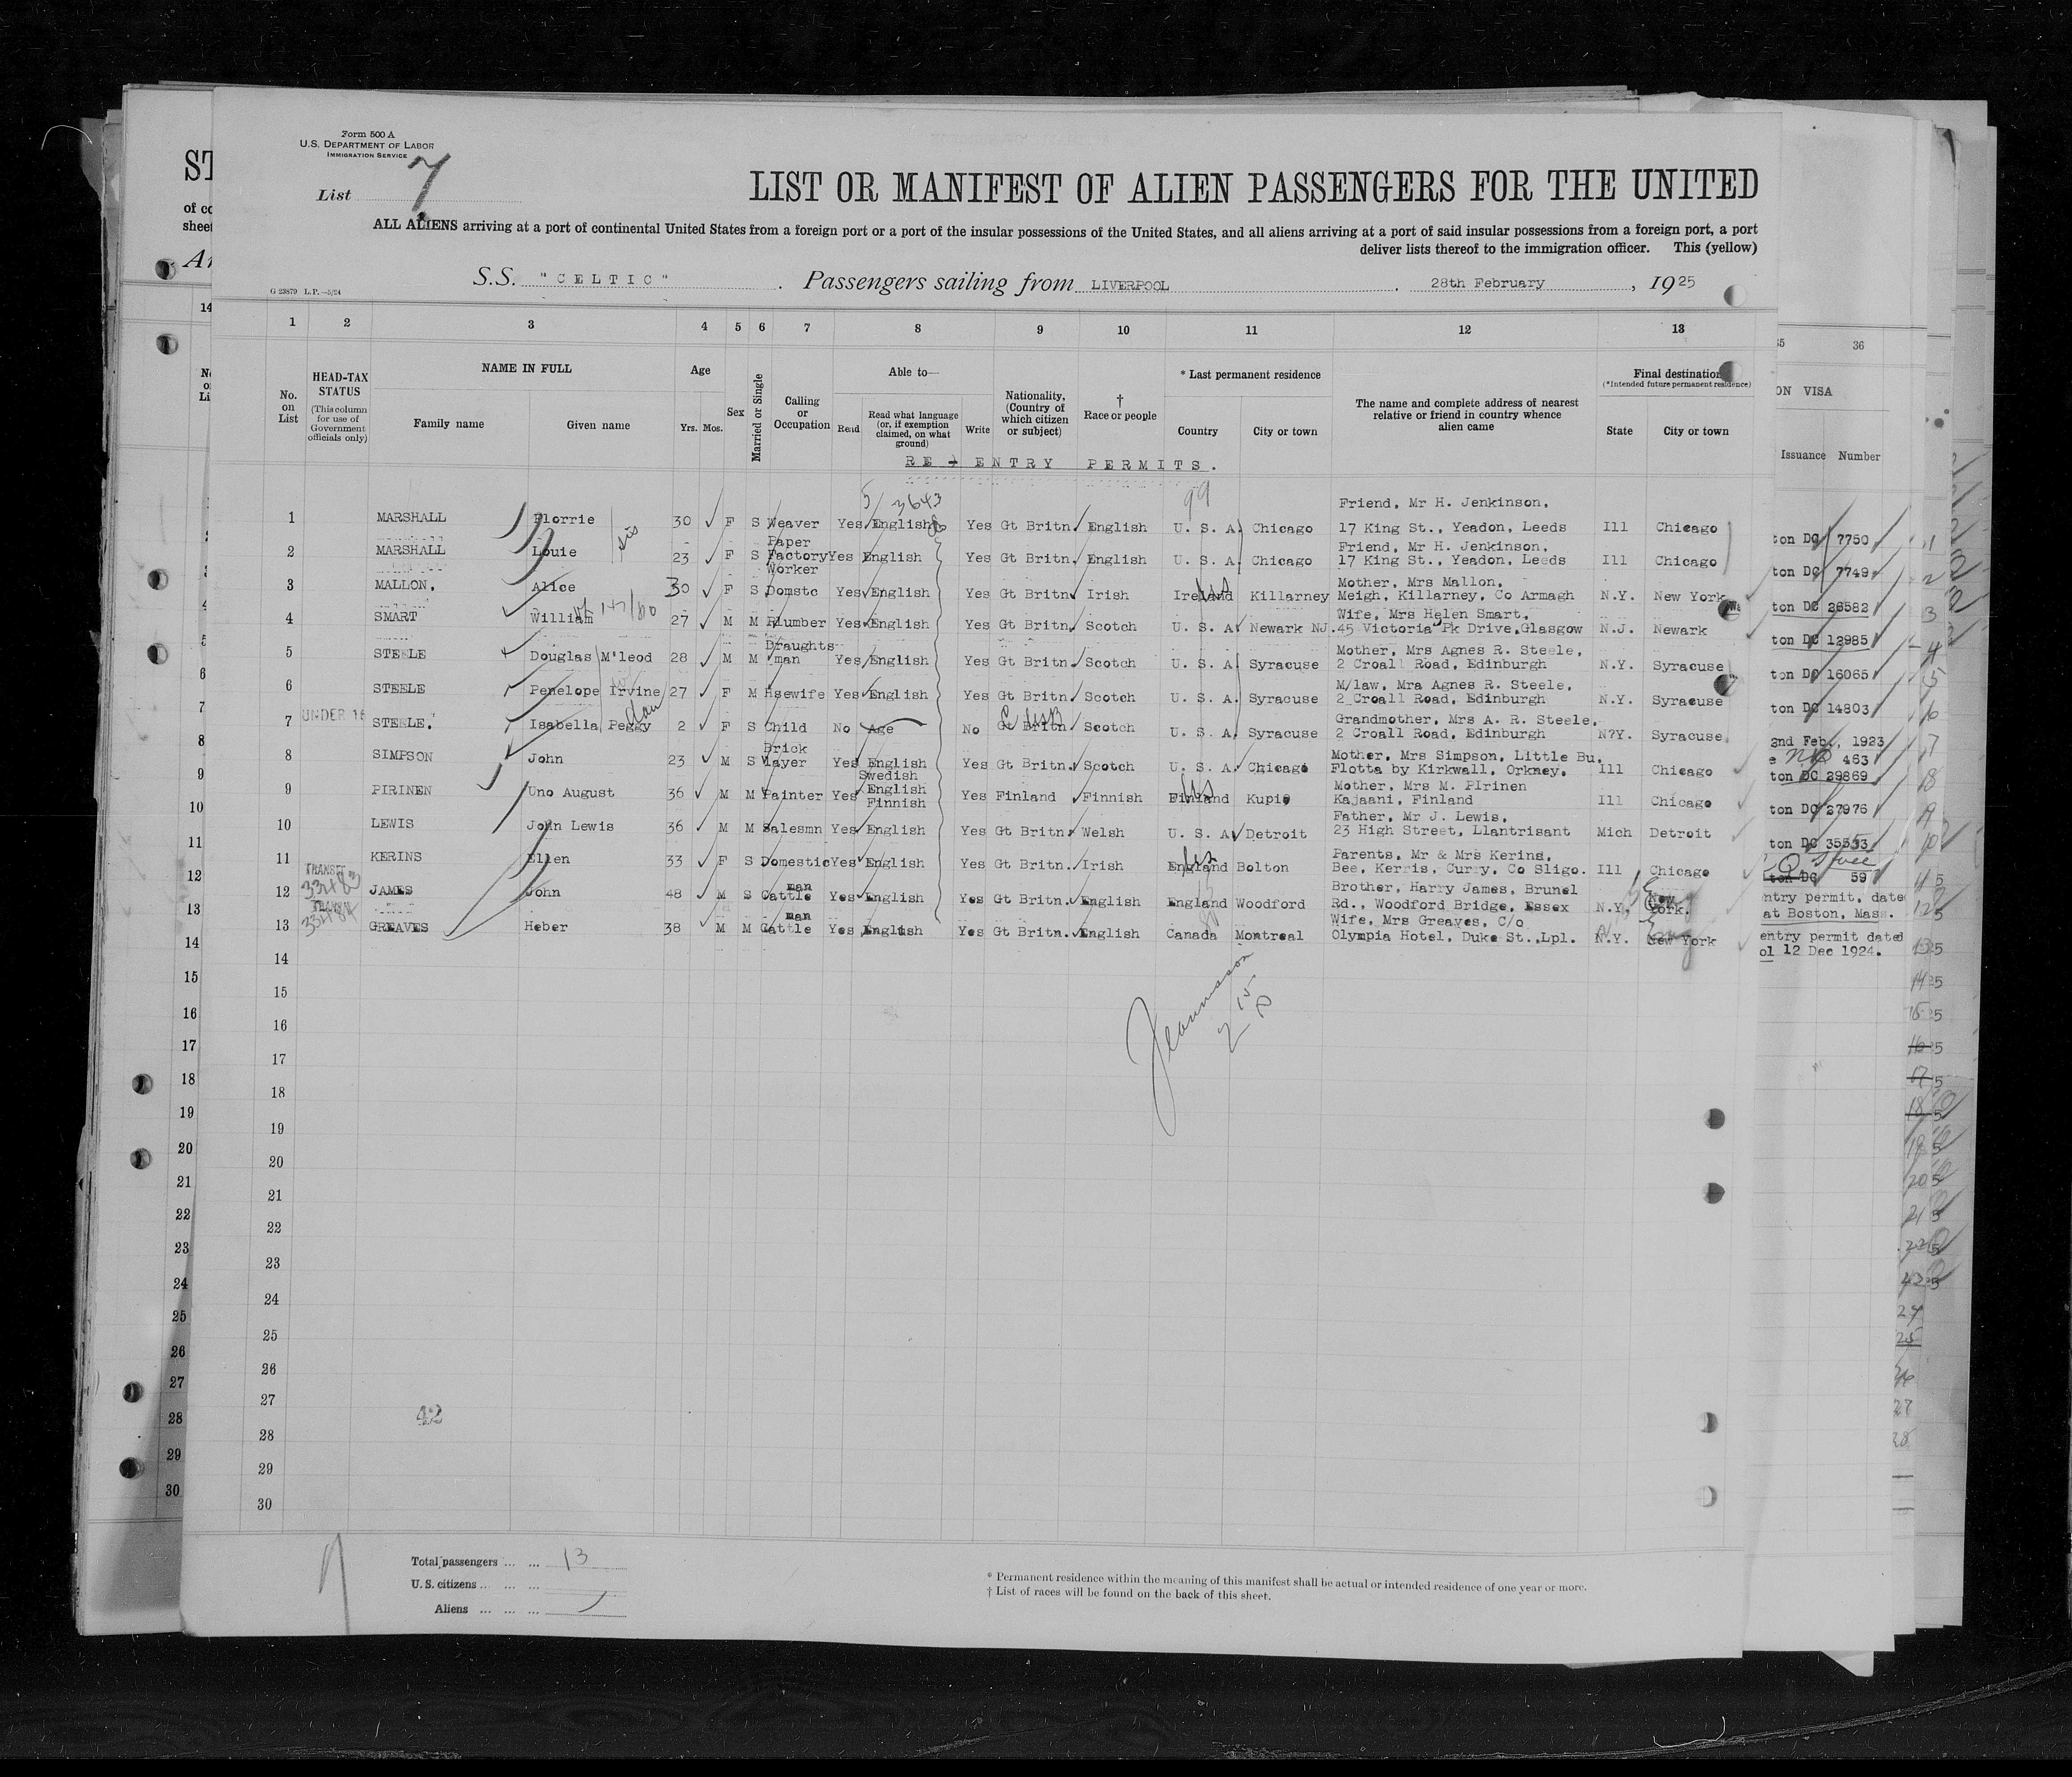 Form 500 A
U.S. DEPARTMENT OF LABOR
IMMIGRATION SERVICE
List 7
LIST OR MANIFEST OF ALIEN PASSENGERS FOR THE UNITED
ALL ALIENS arriving at a port of continental United States from a foreign port or a port of the insular possessions of the United States, and all aliens arriving at a port of said insular possessions from a foreign port, a port
deliver lists thereof to the immigration officer. This (yellow)
S.S. "CELTIC" . Passengers sailing from LIVERPOOL . 28th February , 1925
G 23879 L.P.—5/24
1 2 3 4 5 6 7 8 9 10 11 12 13
No. on List
HEAD-TAX STATUS
(This column for use of Government officials only)
NAME IN FULL
Family name Given name
Age
Yrs. Mos.
Sex
Married or Single
Calling or Occupation
Able to—
Read Read what language (or, if exemption claimed, on what ground) Write
Nationality, (Country of which citizen or subject)
† Race or people
* Last permanent residence
Country City or town
The name and complete address of nearest relative or friend in country whence alien came
Final destination
(*Intended future permanent residence)
State City or town
RE - ENTRY PERMITS.
5/3643 99
Friend, Mr H. Jenkinson,
1 MARSHALL Florrie sis 30 F S Weaver Yes English Yes Gt Britn. English U. S. A. Chicago 17 King St., Yeadon, Leeds Ill Chicago
Paper Friend, Mr H. Jenkinson,
2 MARSHALL Louie 23 F S Factory Yes English Yes Gt Britn. English U. S. A. Chicago 17 King St., Yeadon, Leeds Ill Chicago
Worker Mother, Mrs Mallon,
3 MALLON, Alice 30 F S Domstc Yes English Yes Gt Britn. Irish Ireland Killarney Meigh, Killarney, Co Armagh N.Y. New York
Wife, Mrs Helen Smart,
4 SMART William 27 M M Plumber Yes English Yes Gt Britn. Scotch U. S. A. Newark NJ. 45 Victoria Pk Drive, Glasgow N.J. Newark
Draughts- Mother, Mrs Agnes R. Steele,
5 STEELE Douglas M'leod 28 M M man Yes English Yes Gt Britn. Scotch U. S. A. Syracuse 2 Croall Road, Edinburgh N.Y. Syracuse
M/law, Mra Agnes R. Steele,
6 STEELE Penelope Irvine 27 F M Hsewife Yes English Yes Gt Britn. Scotch U. S. A. Syracuse 2 Croall Road, Edinburgh N.Y. Syracuse
Grandmother, Mrs A. R. Steele,
7 UNDER 16 STEELE. Isabella Peggy 2 F S Child No Age No Gt Britn Scotch U. S. A. Syracuse 2 Croall Road, Edinburgh N?Y. Syracuse
Brick Mother, Mrs Simpson, Little Bu,
8 SIMPSON John 23 M S layer Yes English Yes Gt Britn. Scotch U. S. A. Chicago Flotta by Kirkwall, Orkney. Ill Chicago
Swedish Mother, Mrs M. PIrinen
9 PIRINEN Uno August 36 M M Painter Yes English Finnish Yes Finland Finnish Finland Kupio Kajaani, Finland Ill Chicago
Father, Mr J. Lewis,
10 LEWIS John Lewis 36 M M Salesmn Yes English Yes Gt Britn. Welsh U. S. A. Detroit 23 High Street, Llantrisant Mich Detroit
Parents, Mr & Mrs Kerins,
11 KERINS Ellen 33 F S Domestic Yes English Yes Gt Britn. Irish England Bolton Bee, Kerris, Curry, Co Sligo. Ill Chicago
TRANSIT man Brother, Harry James, Brunel
12 JAMES John 48 M S Cattle Yes English Yes Gt Britn. English England Woodford Rd., Woodford Bridge, Essex N.Y. New York.
man Wife, Mrs Greaves, C/o
13 GREAVES Heber 38 M M Cattle Yes English Yes Gt Britn. English Canada Montreal Olympia Hotel, Duke St., Lpl. N.Y. New York
14
15
16
17
18
19
20
21
22
23
24
25
26
27
28
29
30
42
Total passengers ... ... 13
U. S. citizens ... ... ...
Aliens ... ... ...
* Permanent residence within the meaning of this manifest shall be actual or intended residence of one year or more.
† List of races will be found on the back of this sheet.
35 36
ON VISA
Issuance Number
ton DC 7750
ton DC 7749
ton DC 26582
ton DC 12985
ton DC 16065
ton DC 14803
2nd Feb., 1923
463
ton DC 29869
ton DC 27976
ton DC 35533
ton DC 59
entry permit, date
at Boston, Mass.
entry permit dated
ol 12 Dec 1924.